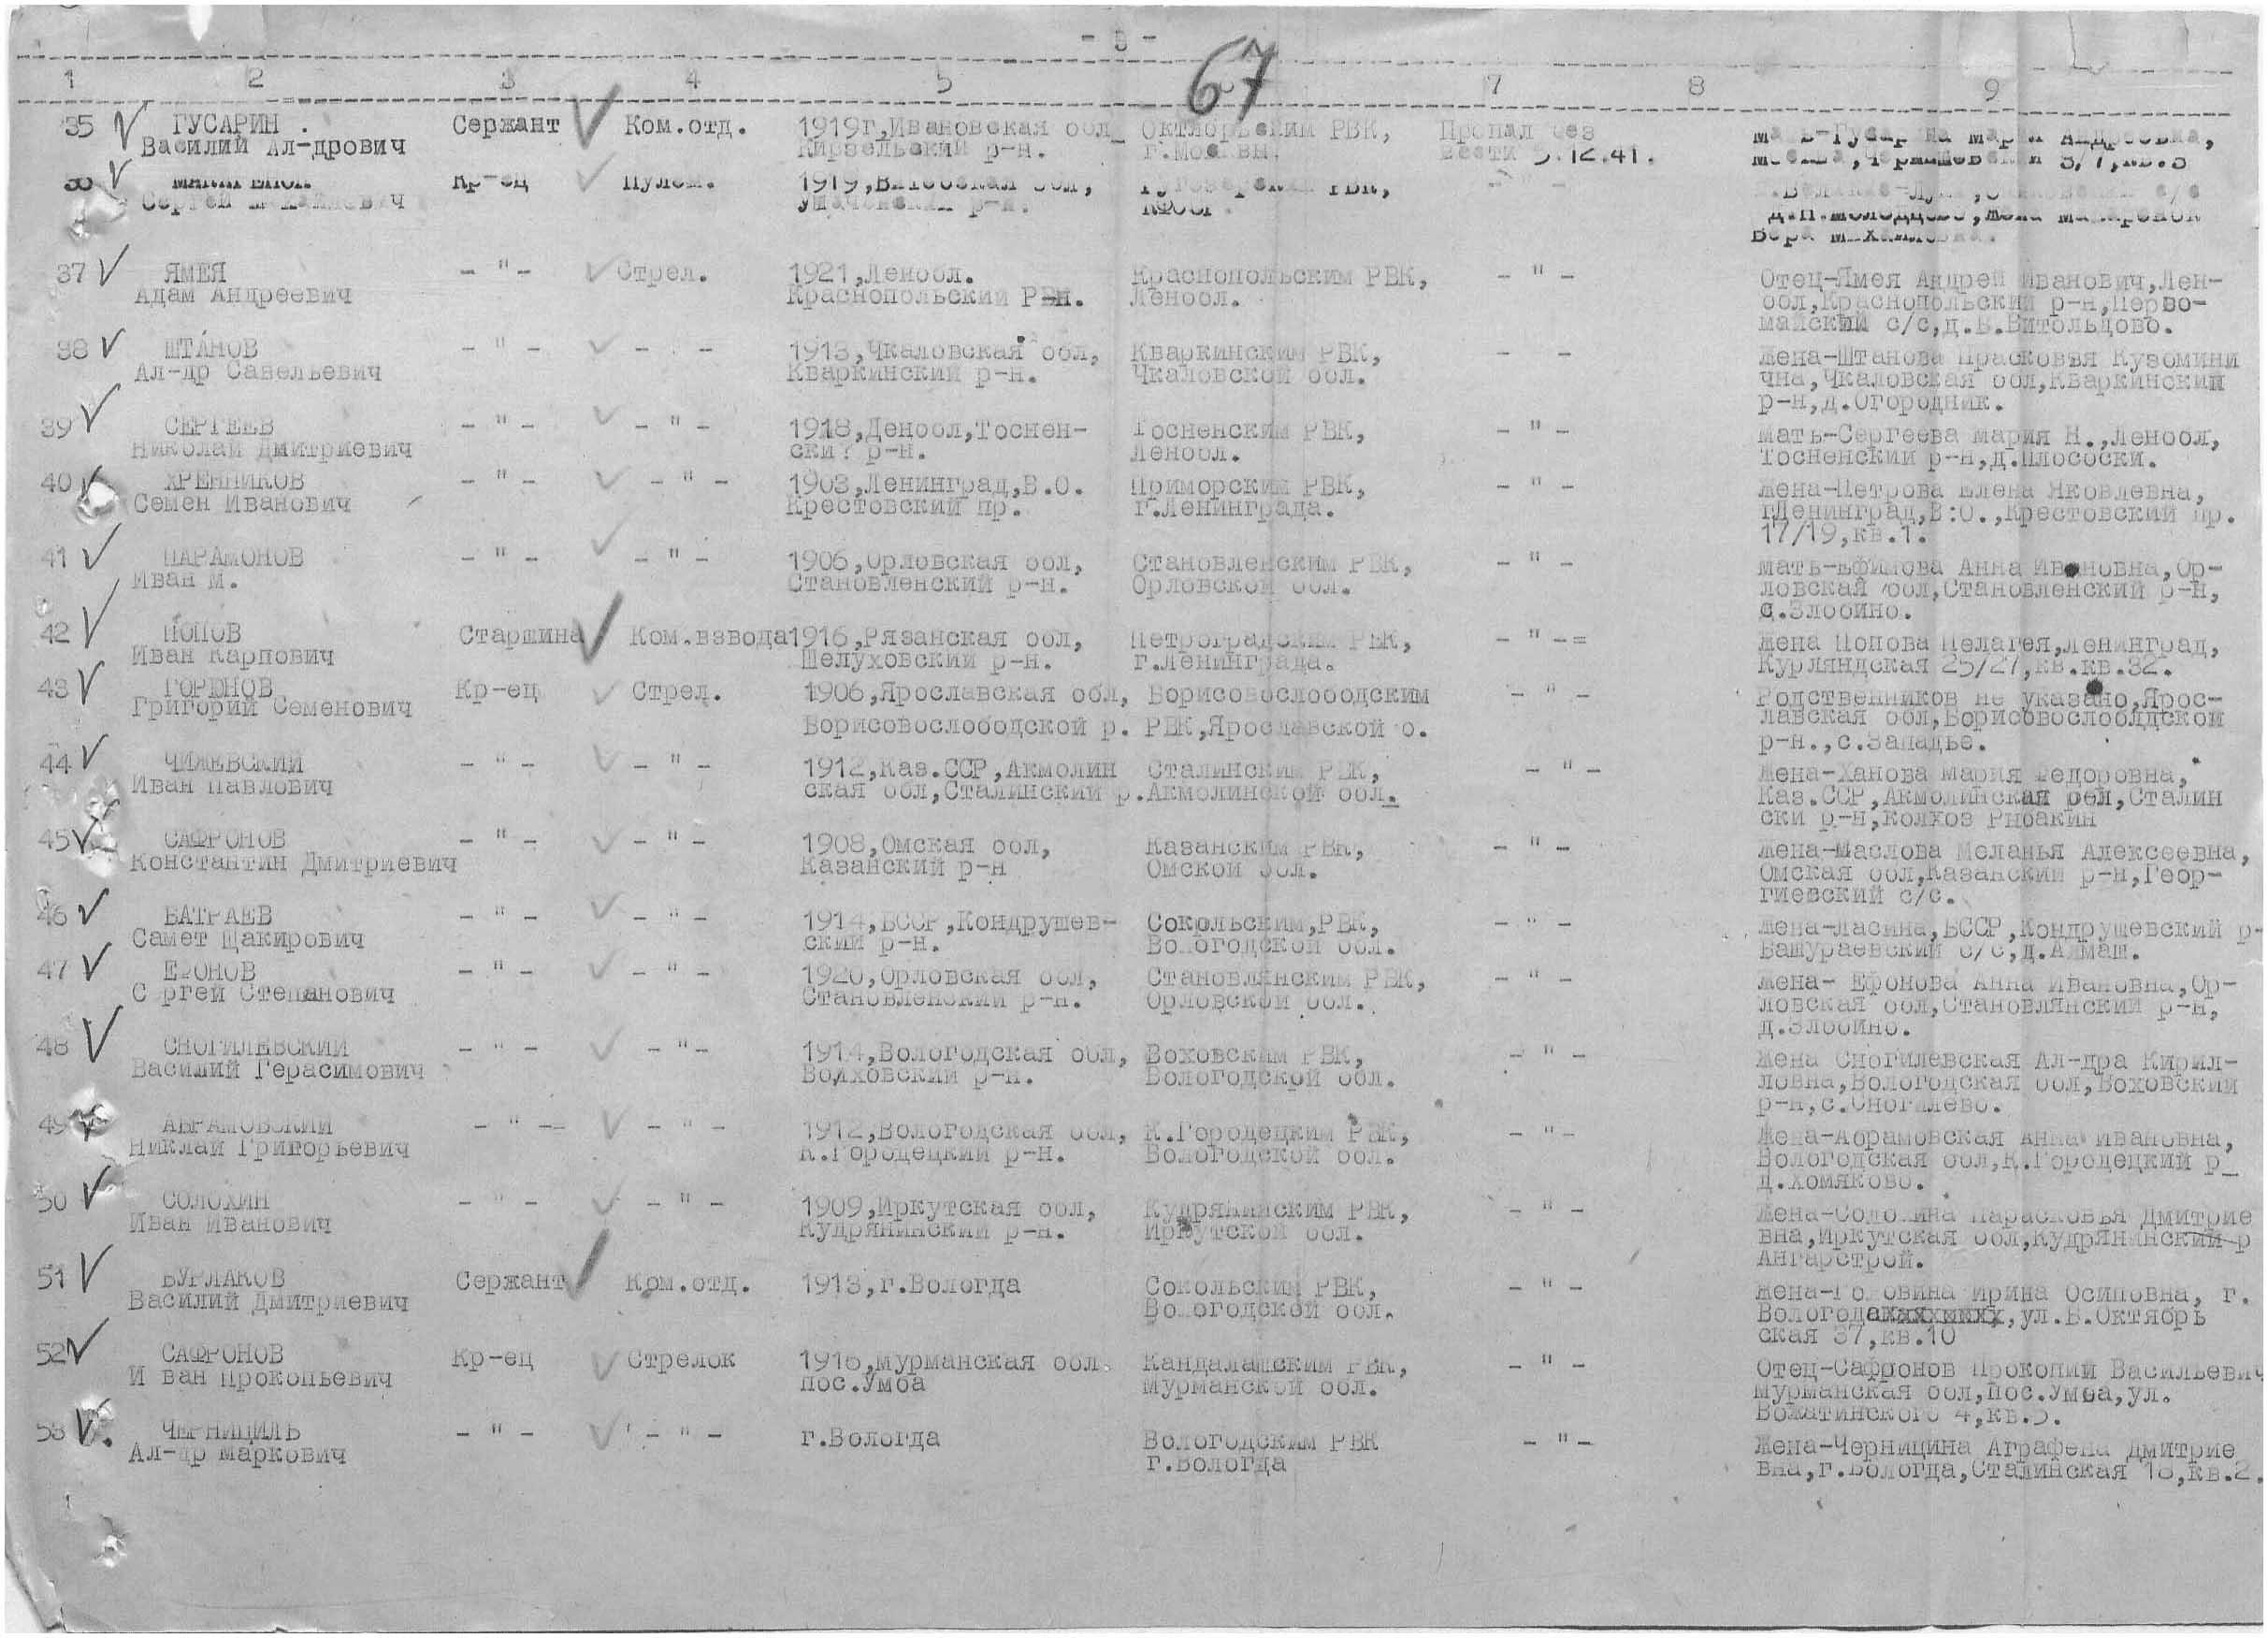 - 3 -
67
1 2 3 4 5 7 8 9
35 ГУСАРИН . Сержант Ком.отд. 1919г,Ивановская обл Октябрьским РВК, Пропал без
Василий Ал-дрович р-н. г.Москвы. вести 5.12.41.
мать-Гусарина Мария Андреевна,
Москва, 3/7,кв.3
Кр-ец Пулем. 1919,Витебская обл, РВК,
Сергей р-н.
жена
Вера Михайловна.
37 ЯМЕЯ - " - Стрел. 1921,Ленобл. Краснопольским РВК, - " - Отец-Ямея Андрей Иванович,Лен-
Адам Андреевич Краснопольский Р-н. Ленобл. обл,Краснопольский р-н,Перво-
майский с/с,д.В.Витольцово.
38 ШТАНОВ - " - - - 1913,Чкаловская обл, Кваркинским РВК, - - Жена-Штанова Прасковья Кузомини
Ал-др Савельевич Кваркинский р-н. Чкаловской обл. чна,Чкаловская обл,Кваркинский
р-н,д.Огородник.
39 СЕРГЕЕВ - " - - " - 1918,Ленобл,Тоснен- Тосненским РВК, - " - Мать-Сергеева Мария Н.,Ленобл,
Николай Дмитриевич ски? р-н. Ленобл. Тосненский р-н,д.Плососки.
40 ХРЕННИКОВ - " - - " - 1903,Ленинград,В.О. Приморским РВК, - " - Жена-Петрова Елена Яковлевна,
Семен Иванович Крестовский пр. г.Ленинграда. гЛенинград,В:О.,Крестовский пр.
17/19,кв.1.
41 ПАРАМОНОВ - " - - " - 1906,Орловская обл, Становленским РВК, - " - Мать-Ефимова Анна Ивановна,Ор-
Иван М. Становленский р-н. Орловской обл. ловская обл,Становленский р-н,
с.Злобино.
42 ПОПОВ Старшина Ком.взвода1916,Рязанская обл, Петроградским РВК, - " -= Жена Попова Пелагея,Ленинград,
Иван Карпович Шелуховский р-н. г.Ленинграда. Курляндская 25/27,кв.кв.32.
43 ГОРЮНОВ Кр-ец Стрел. 1906,Ярославская обл, Борисовослободским - " - Родственников не указано,Ярос-
Григорий Семенович Борисовослободской р. РВК,Ярославской о. лавская обл,Борисовослободдской
р-н.,с.Западье.
44 ЧИЖЕВСКИЙ - " - - " - 1912,Каз.ССР,Акмолин Сталинским РВК, - " - Жена-Ханова Мария Федоровна,
Иван Павлович ская обл,Сталинский р.Акмолинской обл. Каз.ССР,Акмолинская обл,Сталин
ски р-н,колхоз Рыбакин
45 САФРОНОВ - " - - " - 1908,Омская обл, Казанским РВК, - " - Жена-Маслова Меланья Алексеевна,
Константин Дмитриевич Казанский р-н Омской обл. Омская обл,Казанский р-н,Геор-
гиевский с/с.
46 БАТРАЕВ - " - - " - 1914,БССР,Кондрушев- Сокольским,РВК, - " - Жена-Ласина,БССР,Кондрушевский р-
Самет Щакирович ский р-н. Вологодской обл. Башураевский с/с,д.Алмаш.
47 ЕФОНОВ - " - - " - 1920,Орловская обл, Становлянским РВК, - " - Жена- Ефонова Анна Ивановна,Ор-
Сергей Степанович Становленский р-н. Орловской обл. ловская обл,Становлянский р-н,
д.Злобино.
48 СНОГИЛЕВСКИЙ - " - - " - 1914,Вологодская обл, Воховским РВК, - " - Жена Сногилевская Ал-дра Кирил-
Василий Герасимович Волховский р-н. Вологодской обл. ловна,Вологодская обл,Воховский
р-н,с.Сногилево.
49 АБРАМОВСКИЙ - " -- - " - 1912,Вологодская обл, К.Городецким РВК, - " - Жена-Абрамовская Анна Ивановна,
Никлай Григорьевич К.Городецкий р-н. Вологодской обл. Вологодская обл,К.Городецкий р_
д.Хомяково.
50 СОЛОХИН - " - - " - 1909,Иркутская обл, Кудрянинским РВК, - " - Жена-Солохина Парасковья Дмитрие
Иван Иванович Кудрянинский р-н. Иркутской обл. вна,Иркутская обл,Кудрянинский р
Ангарстрой.
51 БУРЛАКОВ Сержант Ком.отд. 1913,г.Вологда Сокольским РВК, - " - Жена-Головина Ирина Осиповна, г.
Василий Дмитриевич Вологодской обл. Вологда,ул.В.Октябрь
ская 37,кв.10
52 САФРОНОВ Кр-ец Стрелок 1916,Мурманская обл. Кандалашским РВК, - " - Отец-Сафронов Прокопий Васильевич
И ван Прокопьевич пос.Умба Мурманской обл. Мурманская обл,пос.Умба,ул.
Вожатинского 4,кв.5.
53 ЧЕРНИЦИЛЬ - " - - " - г.Вологда Вологодским РВК - " - Жена-Черницина Аграфена Дмитрие
Ал-др Маркович г.Вологда вна,г.Вологда,Сталинская 18,кв.2.